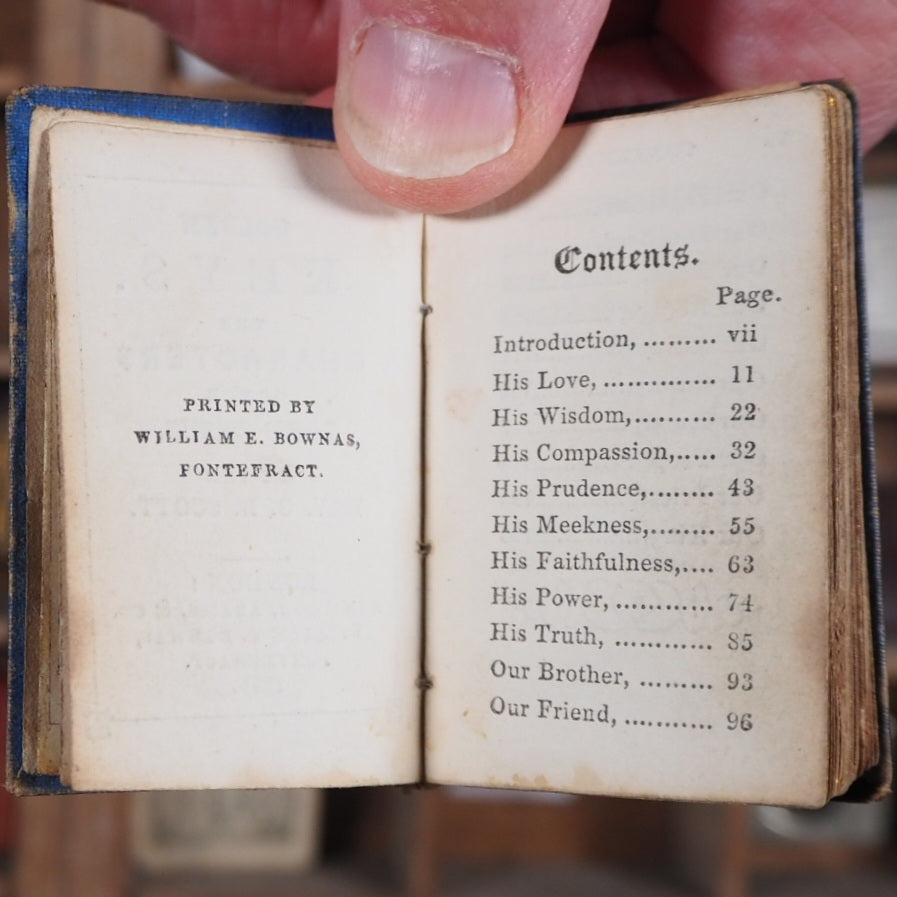 PRINTED BY
WILLIAM E. BOWNAS,
PONTEFRACT.
Contents.
Page.
Introduction, ......... vii
His Love, .............. 11
His Wisdom,.......... 22
His Compassion,..... 32
His Prudence,........ 43
His Meekness,........ 55
His Faithfulness,.... 63
His Power, ............ 74
His Truth, ............ 85
Our Brother, ......... 93
Our Friend, ........... 96